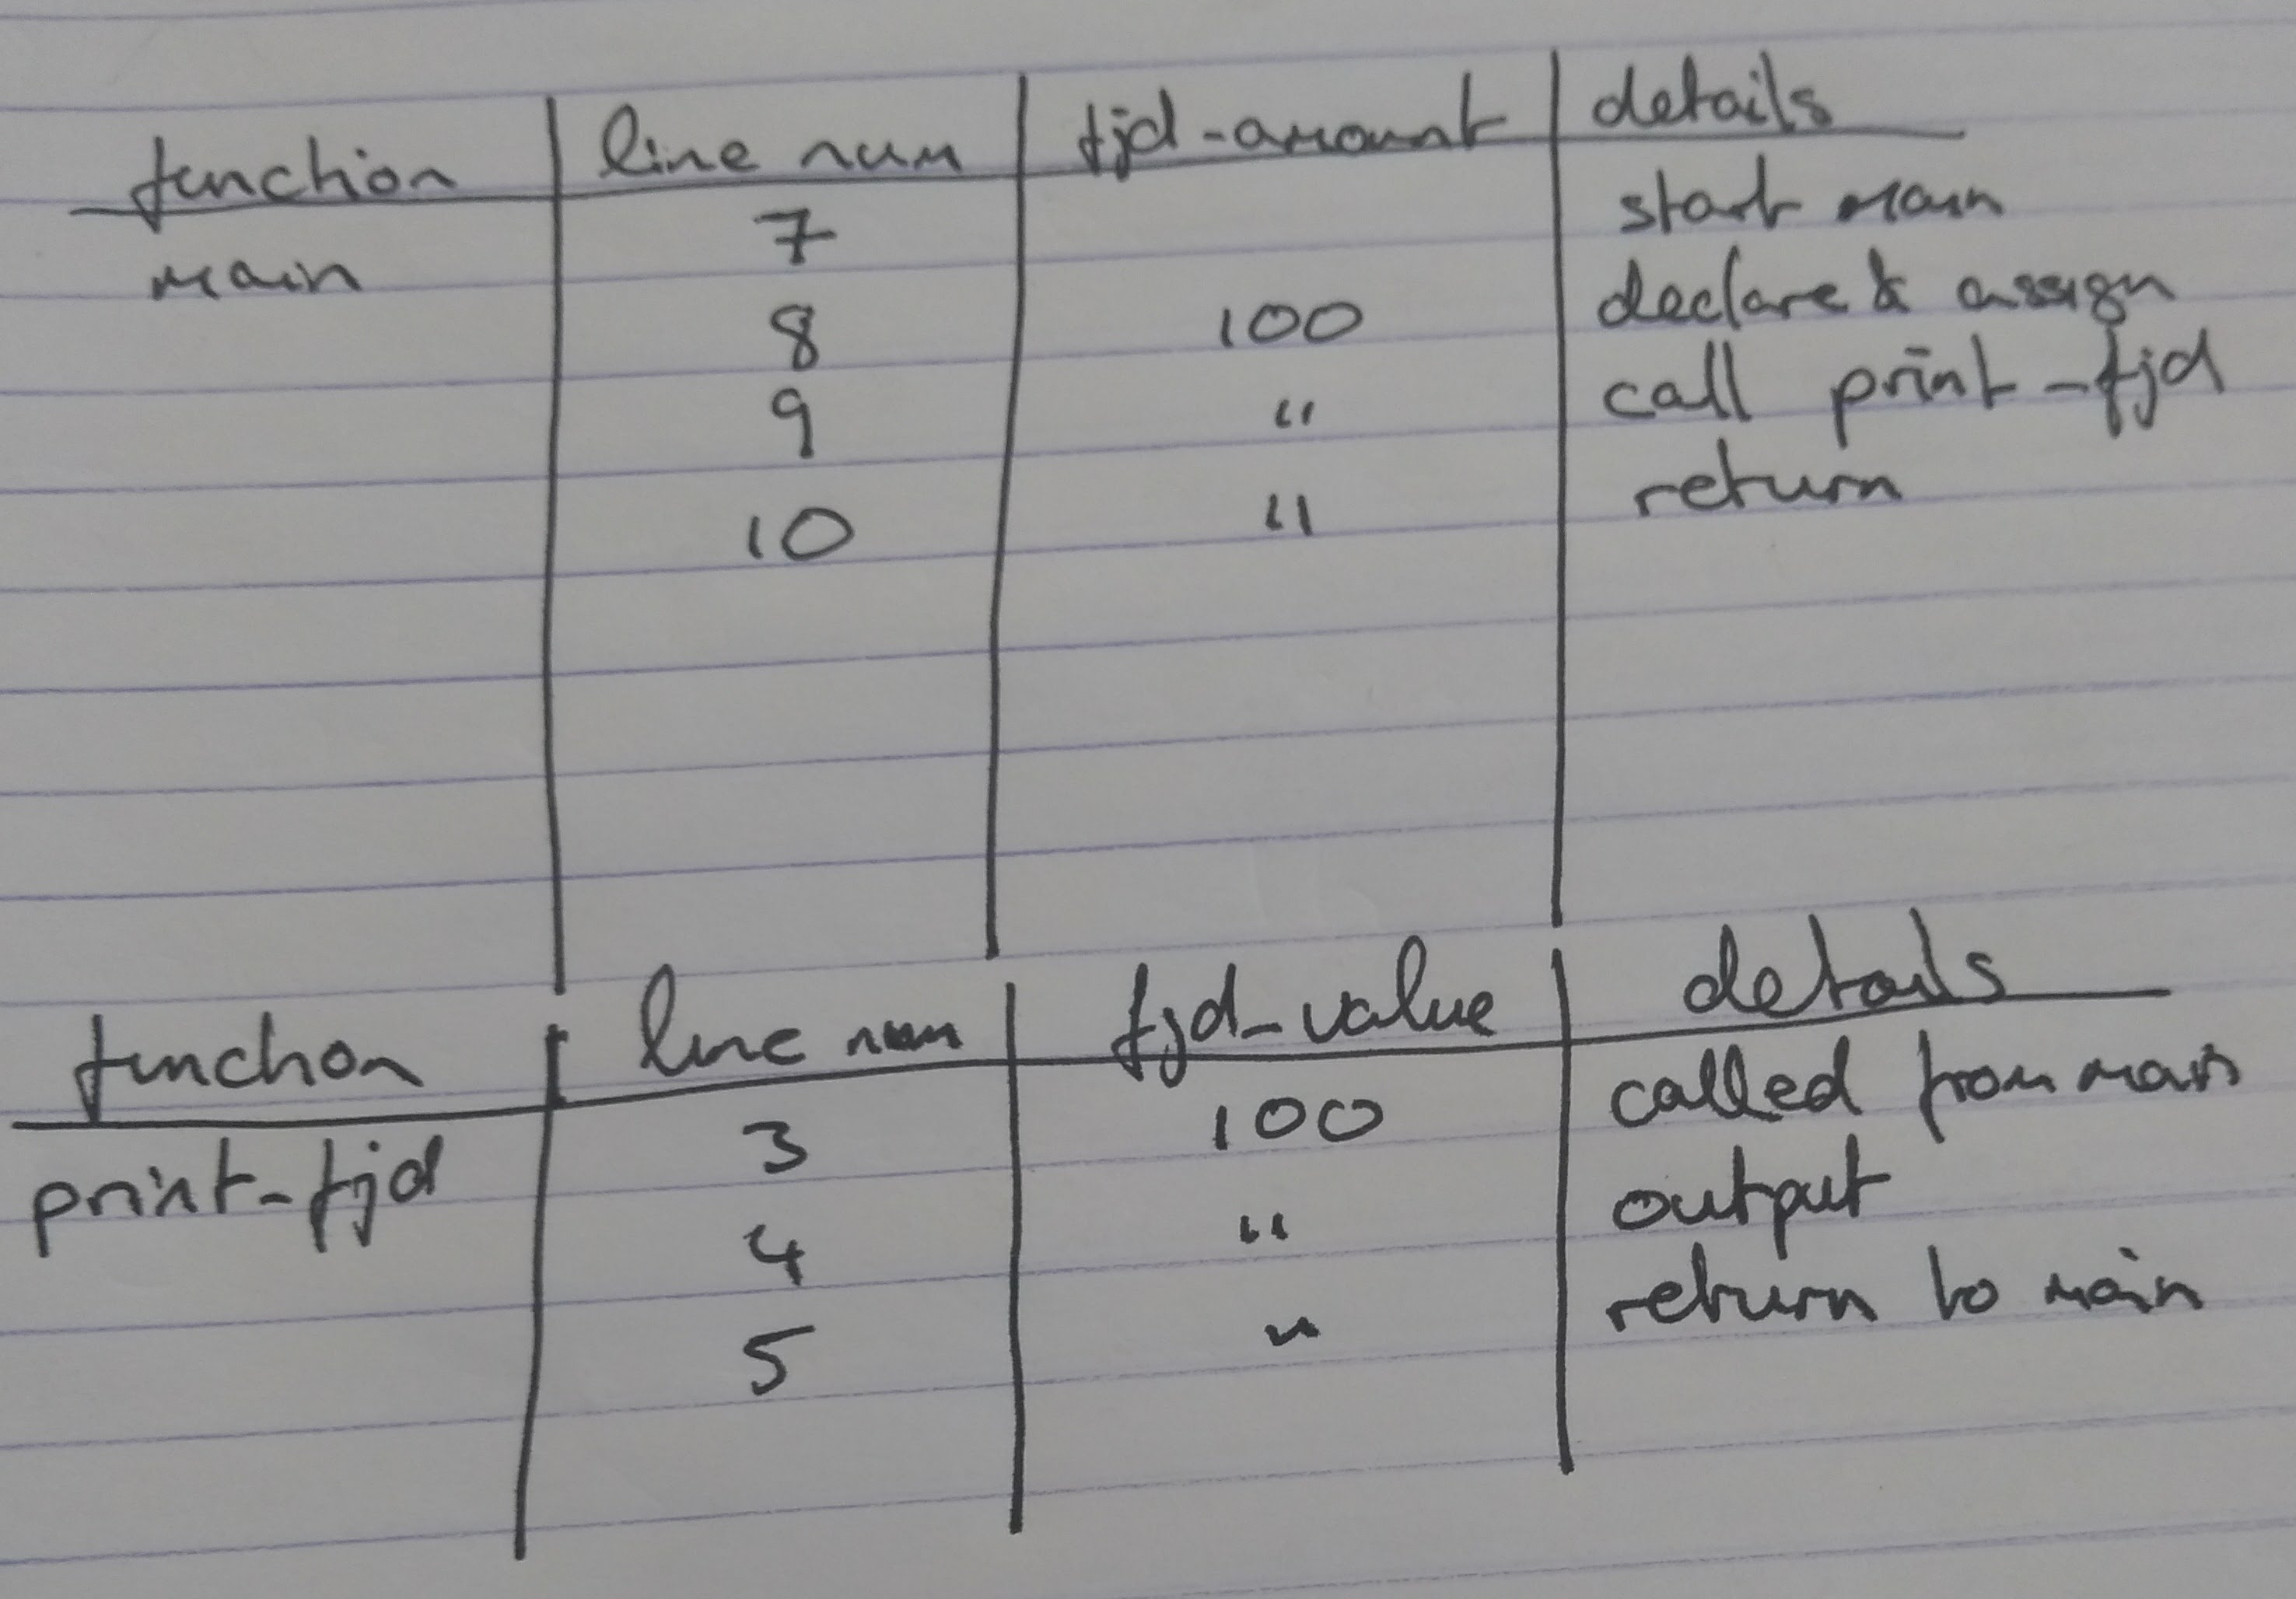 function line num fjd-amount details
main 7 start main
8 100 declare & assign
9 " call print-fjd
10 " return
function line num fjd_value details
print-fjd 3 100 called from main
4 " output
5 " return to main